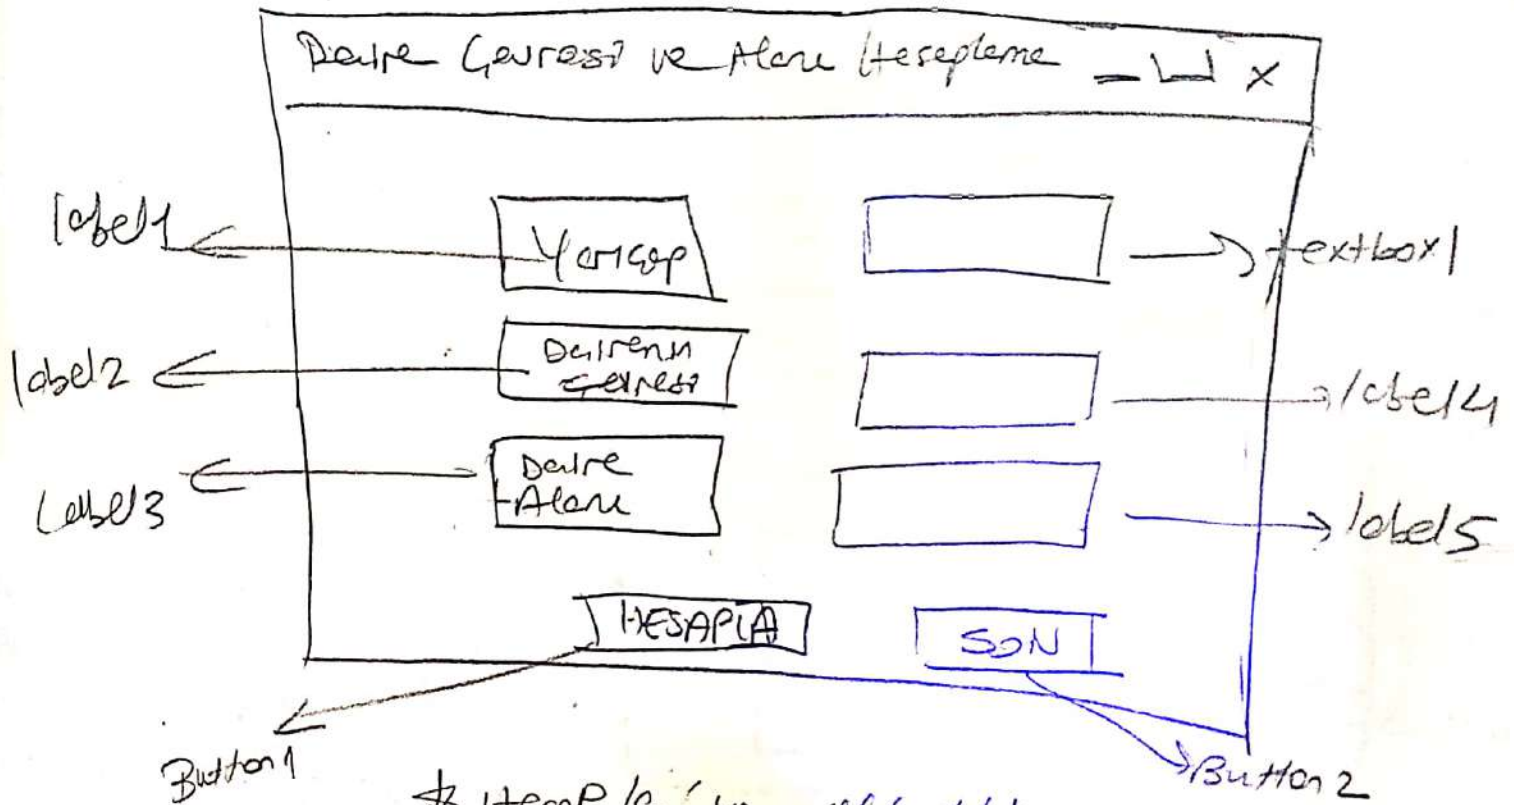 Daire Çevresi ve Alanı Hesaplama _ X
label1
Yarıçap
textbox1
label2
Dairenin
Çevresi
label4
Label3
Daire
Alanı
label5
HESAPLA
SON
Button1
Button2